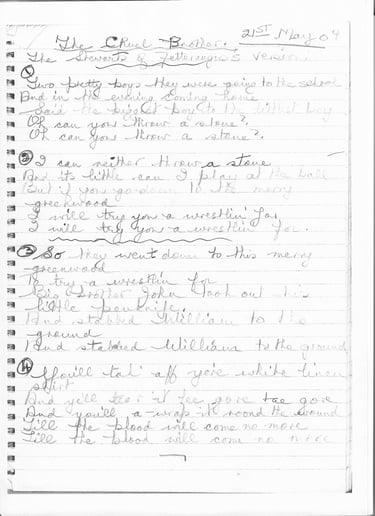 21ST May 09
The Cruel Brother.
The Stewarts & Fetterangus's version
1
Two pretty boys they were going to the school
And in the evening coming home
Said the biggest boy to the littlest boy
Oh can you throw a stone?.
Oh can you throw a stone?.
2 I can neither throw a stone
And its little can I play at the ball
But if you go down to the merry
greenwood
I will try you a wrestlin' for,
I will try you a wrestlin' for.
3 So they went down to this merry
greenwood
To try a wrestlin for
Big Brother John took out his
little penknife,
And stabbed William to the
ground
And stabbed William to the ground
4 You'll tak' aff yore white linen
shirt
And ye'll tear it fae gore tae gore
And you'll a-wrap it roond the wound
Till the blood will come no more
Till the blood will come no more